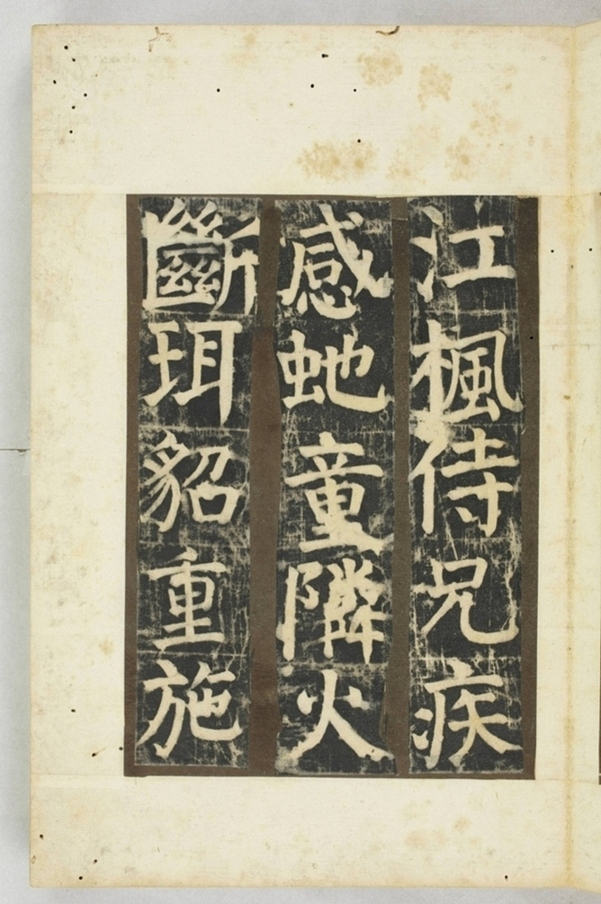 江楓侍兄疾
感虵童隣火
斷珥貂重施